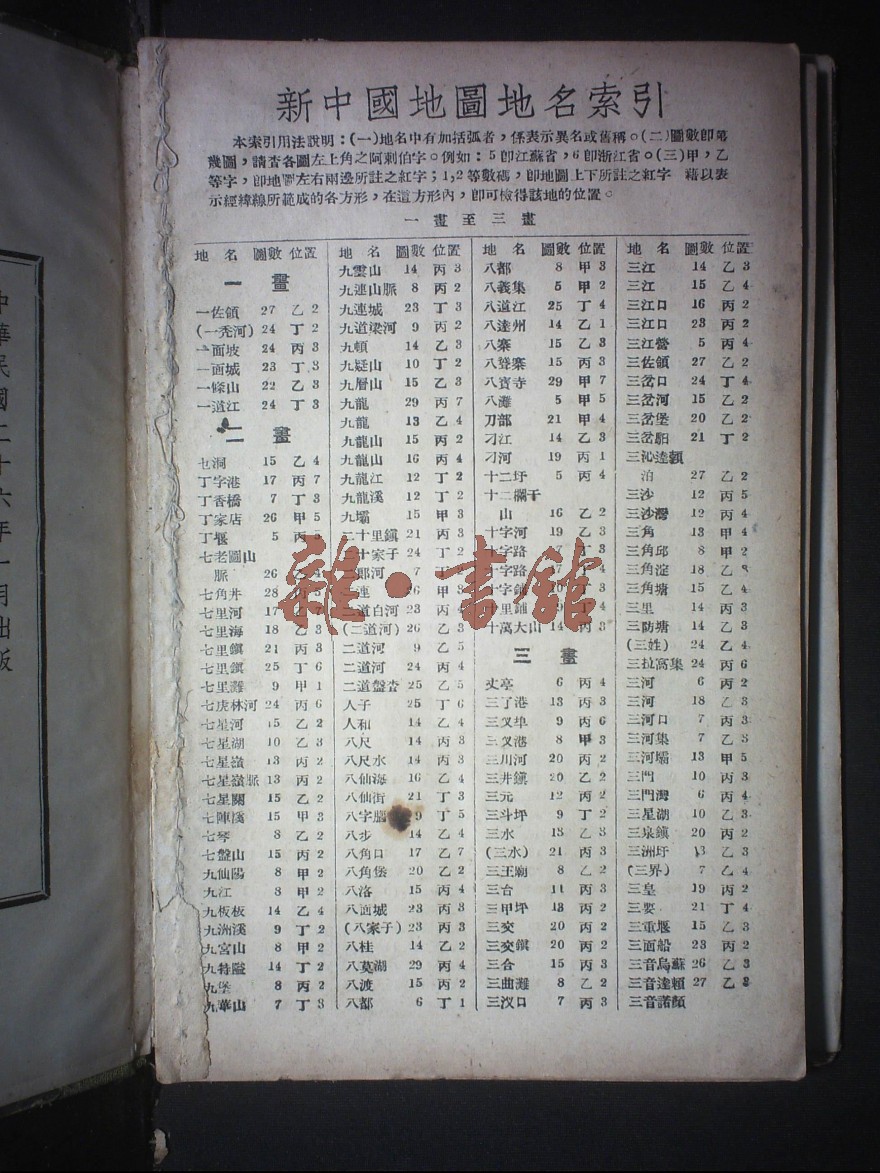 新中國地圖地名索引
本索引用法說明：(一)地名中有加括弧者，係表示異名或舊稱。(二)圖數卽第
幾圖，請查各圖左上角之阿剌伯字。例如：5卽江蘇省，6卽浙江省。(三)甲，乙
等字，卽地圖左右兩邊所註之紅字；1,2等數碼，卽地圖上下所註之紅字 藉以表
示經緯線所範成的各方形，在這方形內，卽可檢得該地的位置。
一畫至三畫
地名 圖數 位置
一畫
一佐領 27 乙 2
(一禿河) 24 丁 2
一面坡 24 丙 3
一面城 23 丁 3
一條山 22 乙 3
一道江 24 丁 3
二畫
乜洞 15 乙 4
丁字港 17 丙 7
丁香橋 7 丁 3
丁家店 26 甲 5
丁堰 5 丙 5
七老圖山
脈 26 乙 4
七角井 28 丙 5
七里河 17 乙 7
七里海 18 乙 3
七里鎭 21 丙 3
七里鎭 25 丁 6
七里灘 9 甲 1
七虎林河 24 丙 6
七星河 15 乙 2
七星湖 10 乙 3
七星嶺 13 丙 2
七星嶺脈 13 丙 2
七星關 15 乙 2
七陣溪 15 甲 3
七琴 8 乙 2
七盤山 15 丙 2
九仙陽 8 甲 2
九江 8 甲 2
九板板 14 乙 4
九洲溪 9 丁 2
九宮山 8 甲 2
九特隘 14 丁 2
九堡 8 丙 2
九華山 7 丁 3
地名 圖數 位置
九雲山 14 丙 3
九連山脈 8 丙 2
九連城 23 丁 3
九道梁河 9 丙 2
九頓 14 乙 3
九嶷山 10 丁 2
九層山 15 乙 3
九龍 29 丙 7
九龍 13 乙 4
九龍山 15 丙 2
九龍山 16 丙 4
九龍江 12 丁 2
九龍溪 12 丁 2
九壩 15 甲 3
二十里鎭 21 丙 3
二十家子 24 丁 2
二郎河 7
二連 26 甲 3
二道白河 23 丙 4
(二道河) 26 乙 3
二道河 9 乙 5
二道河 24 丙 4
二道盤查 25 乙 5
人子 25 丁 6
人和 14 乙 4
八尺 14 丙 3
八尺水 14 丙 3
八仙海 16 乙 4
八仙街 21 丁 3
八字腦 9 丁 5
八步 14 乙 4
八角口 17 乙 7
八角堡 20 乙 2
八洛 15 丙 4
八面城 23 丙 3
(八家子) 23 丙 3
八桂 14 乙 2
八莫湖 29 丙 4
八渡 15 丙 2
八都 6 丁 1
地名 圖數 位置
八都 8 甲 3
八義集 5 甲 2
八道江 25 丁 4
八達州 14 乙 1
八寨 15 乙 3
八聳寨 15 丙 3
八寶寺 29 甲 7
八灘 5 甲 5
刀部 21 甲 4
刁江 14 乙 3
刁河 19 丙 1
十二圩 5 丙 4
十二欄干
山 16 乙 2
十字河 19 乙 3
十字路 丁 3
十字路 丁 4
十字鋪 丁 3
十里鋪 丁 4
十萬大山 14 丙 3
三畫
丈亭 6 丙 4
三了港 13 丙 3
三叉埠 9 丙 6
三叉港 8 甲 3
三川河 20 丙 2
三井鎭 20 乙 2
三元 12 丙 2
三斗坪 9 丁 2
三水 13 乙 3
(三水) 21 丙 3
三王廟 8 乙 2
三台 11 丙 3
三甲坪 13 丙 2
三交 20 丙 2
三交鎭 20 丙 2
三合 15 丙 3
三曲灘 8 乙 2
三汊口 7 丙 3
地名 圖數 位置
三江 14 乙 3
三江 15 乙 4
三江口 16 丙 2
三江口 23 丙 2
三江營 5 丙 4
三佐領 27 乙 2
三岔口 24 丁 4
三岔河 15 乙 2
三岔堡 20 乙 2
三岔驛 21 丁 2
三沁達賴
泊 27 乙 2
三沙 12 丙 5
三沙灣 12 丙 4
三角 13 甲 4
三角邱 8 甲 2
三角淀 18 乙 3
三角塘 15 乙 4
三里 14 丙 3
三防塘 14 乙 3
(三姓) 24 乙 4
三拉窩集 24 丙 6
三河 6 丙 2
三河 18 乙 3
三河口 7 丙 3
三河集 7 乙 3
三河壩 13 甲 5
三門 10 丙 3
三門灣 6 丙 4
三星湖 10 乙 3
三泉鎭 20 丙 2
三洲圩 13 乙 3
(三界) 7 乙 4
三皇 19 丙 2
三要 21 丁 4
三重堰 15 乙 3
三面船 23 丙 2
三音烏蘇 26 乙 3
三音達賴 27 乙 3
三音諾顏
雜·書館
中華民國二十六年一月出版